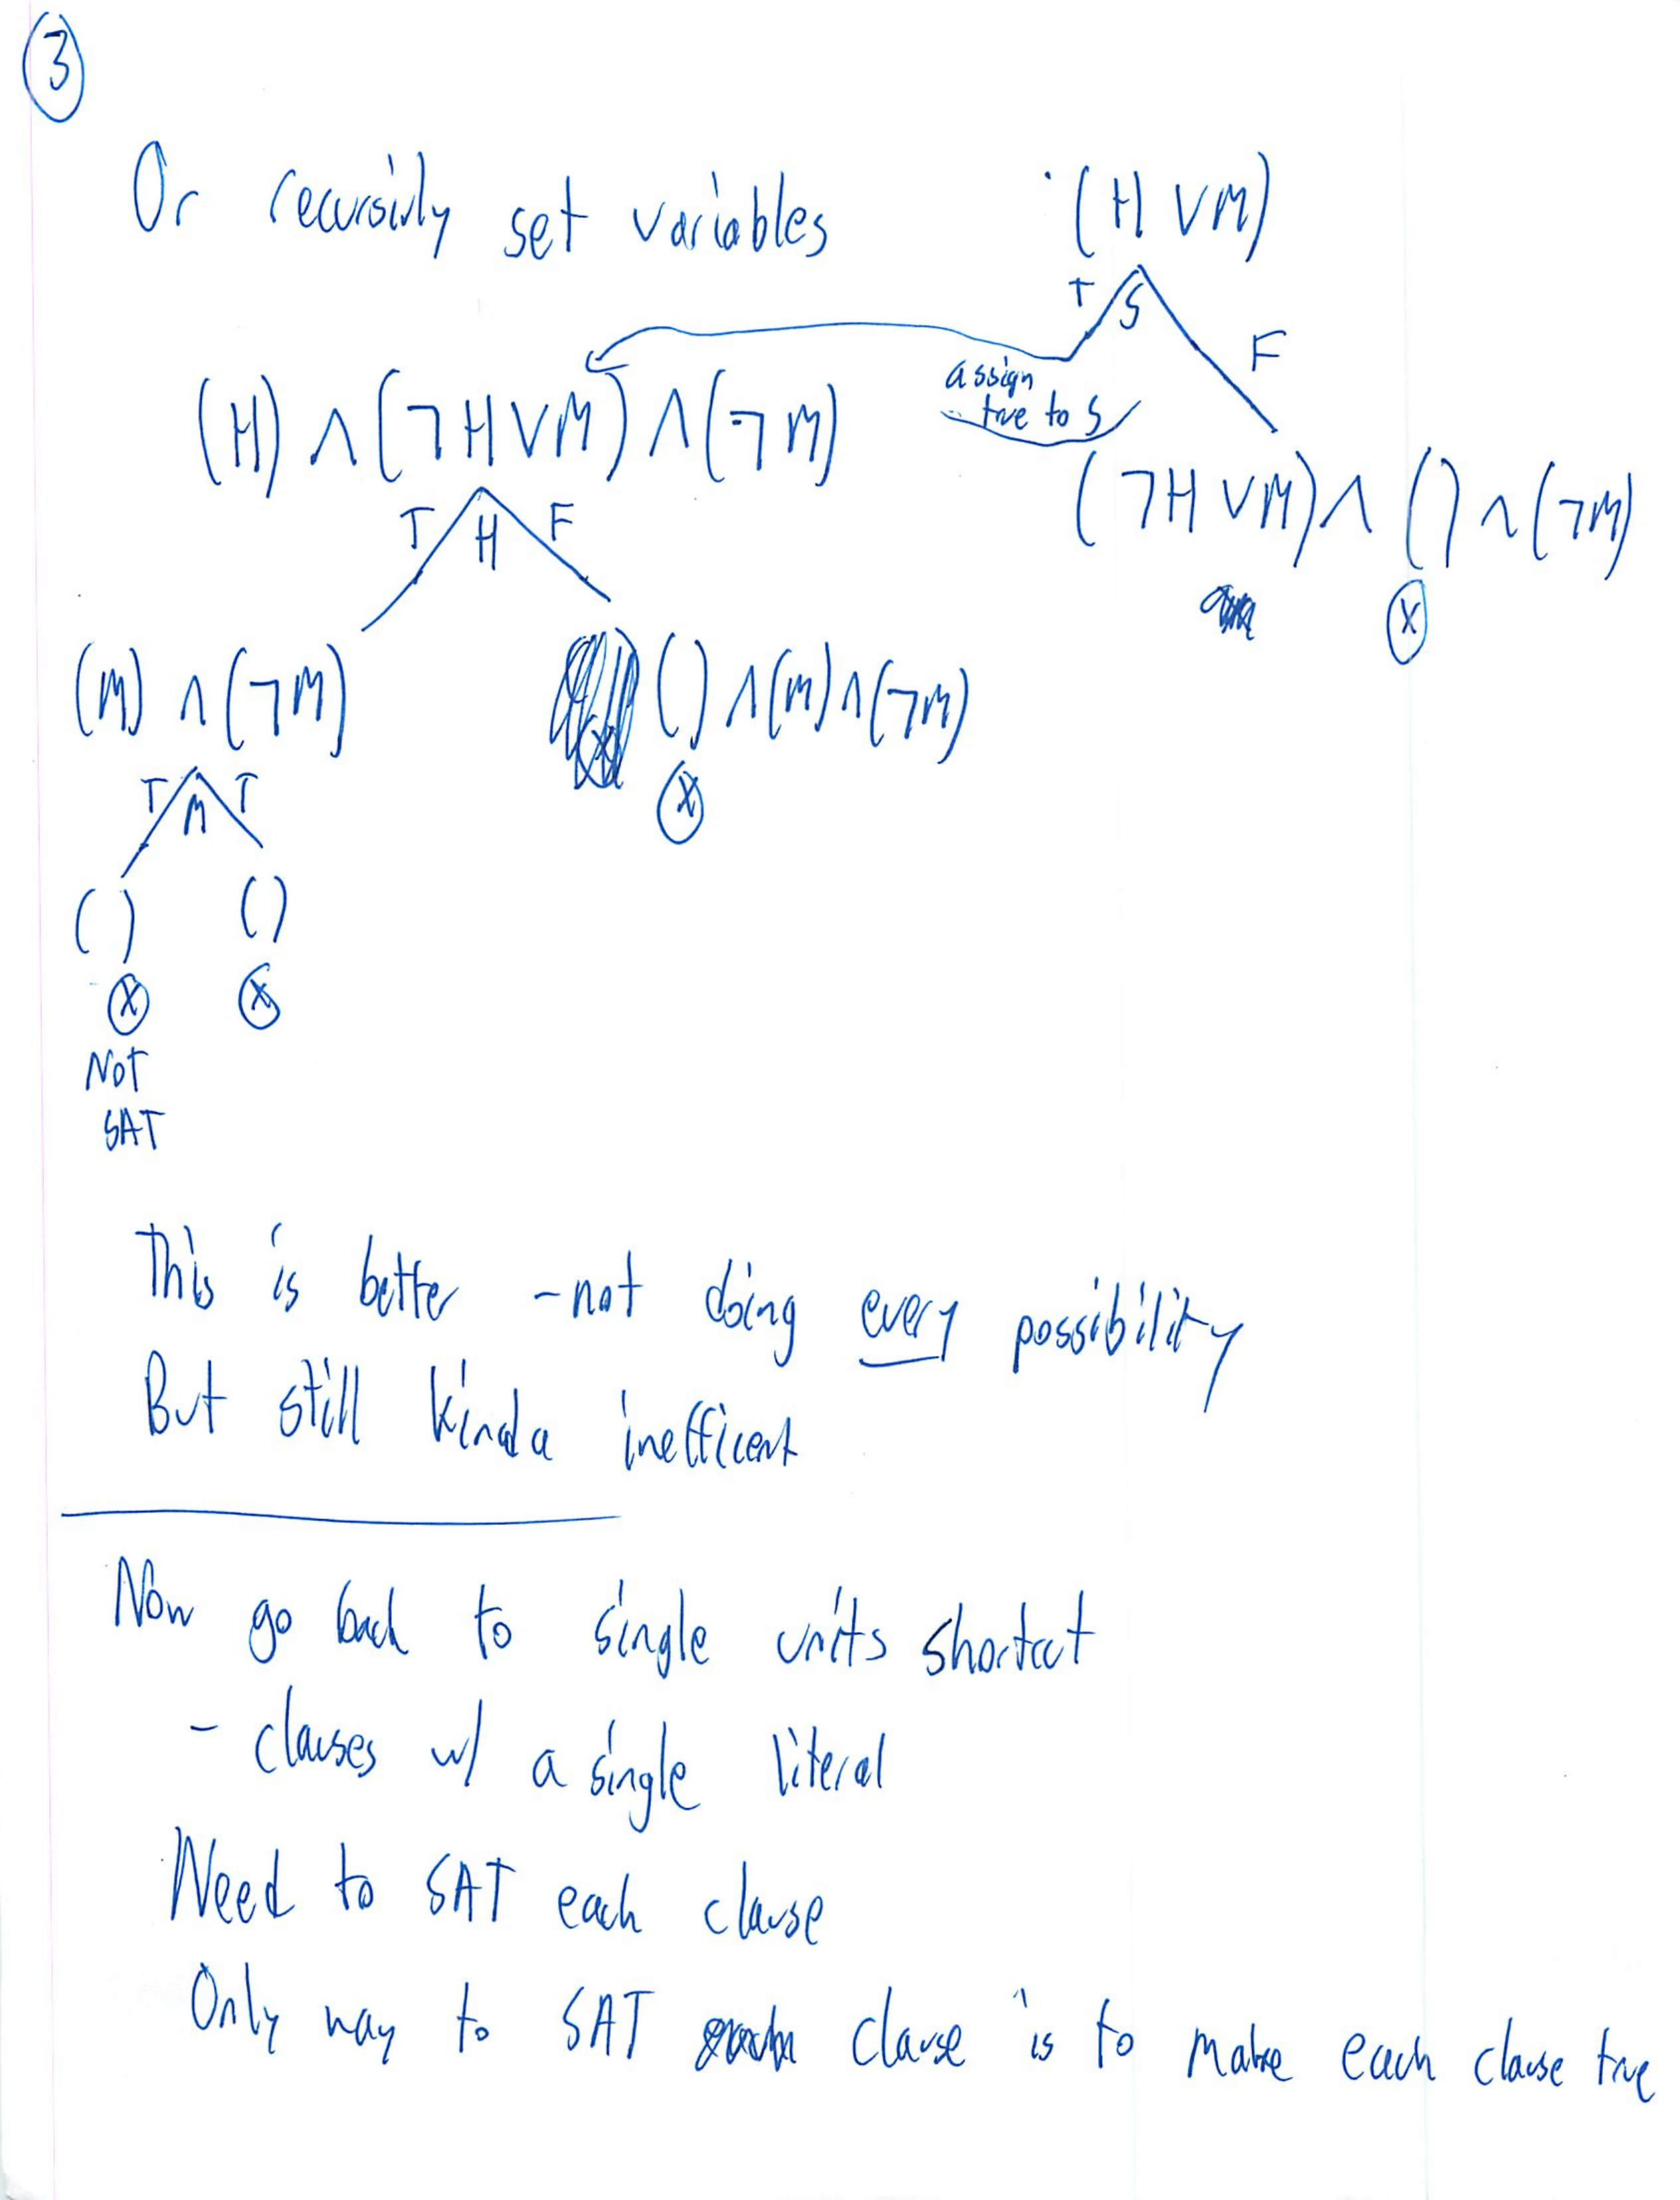 3
Or recursivly set variables
(H ∨ M)
T S F
assign
true to S
(H) ∧ (¬H ∨ M) ∧ (¬M)
(¬H ∨ M) ∧ () ∧ (¬M)
X
T H F
(M) ∧ (¬M)
() ∧ (M) ∧ (¬M)
X
T M T
() ()
X X
Not
SAT
This is better - not doing every possibility
But still kinda inefficent
Now go back to single units shortcut
- clauses w/ a single literal
Need to SAT each clause
Only way to SAT clause is to make each clause true